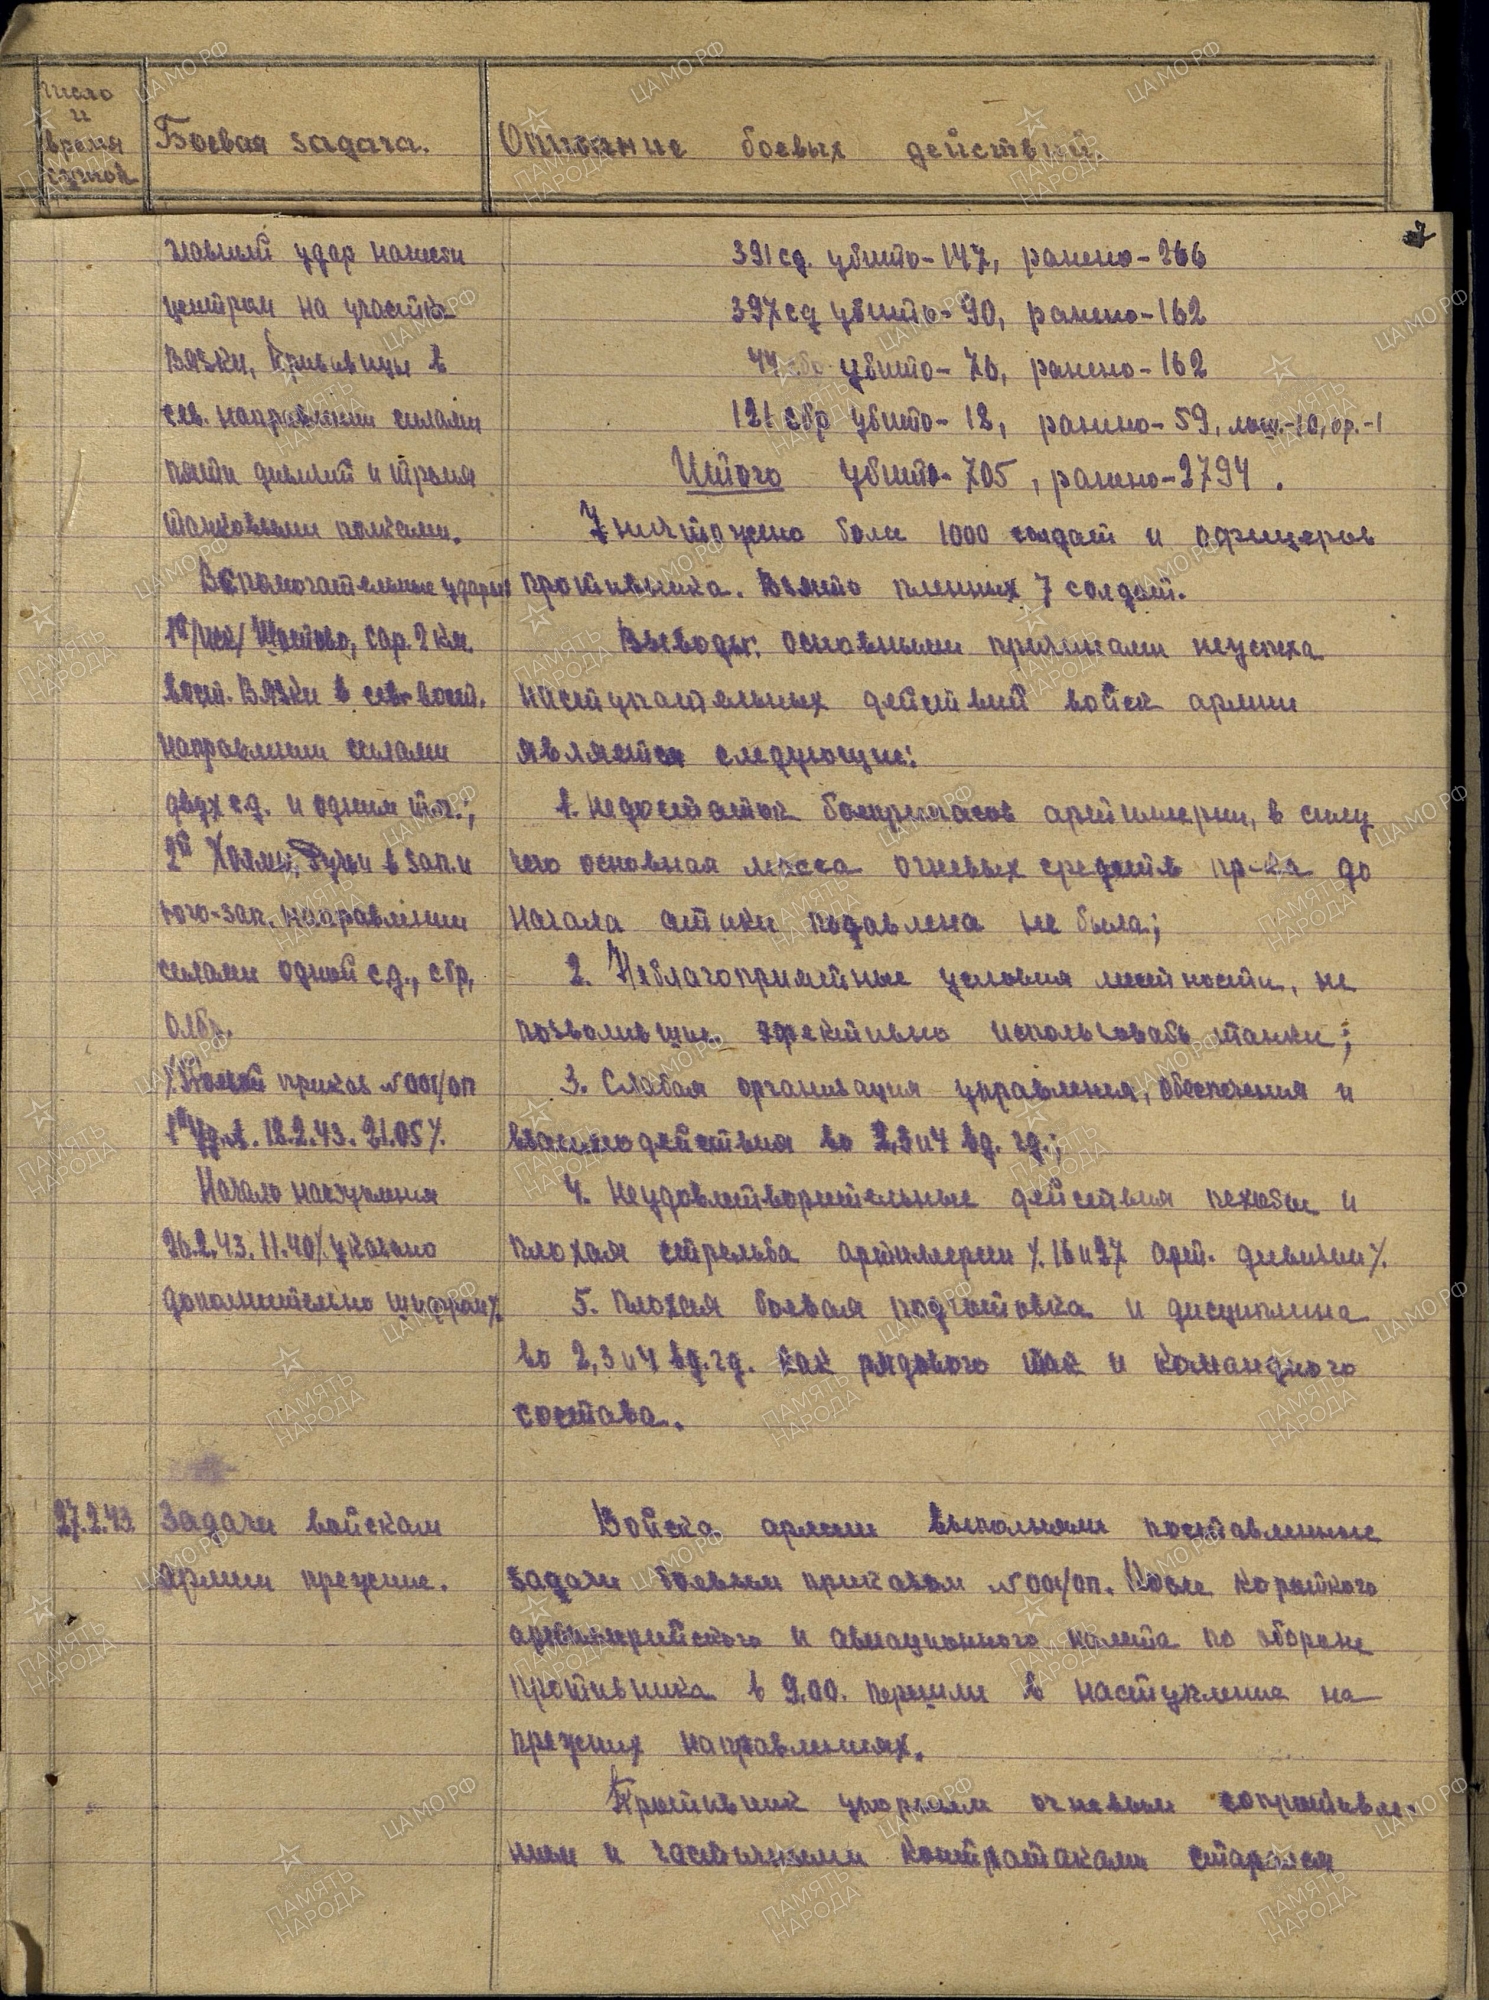 число
и
время
суток
Боевая задача.
Описание боевых действий.
7
главный удар нанести
центром на участке
Вязки, Кривовицы в
сев. направлении силами
пяти дивизий и тремя
танковыми полками.
Вспомогательные удары
1й /иск/ Шотово, сар. 2 км.
вост. Вязки в сев-вост.
направлении силами
двух с.д. и одним т.п.;
2й Холмы, Ручьи в зап. и
юго-зап. направлении
силами одной с.д., сбр,
олбр.
% Боевой приказ №001/оп
1й Уд.А. 18.2.43. 21.05%.
Начало наступления
26.2.43. 11.40 % указано
дополнительно шифром %.
391 сд. убито-147, ранено-266
397 сд убито-90, ранено-162
44 сбр убито-76, ранено-162
121 сбр убито-18, ранено-59, лош.-10, ор.-1
Итого убито-705, ранено-2794.
Уничтожено боле 1000 солдат и офицеров
противника. Взято пленных 7 солдат.
Выводы: основными причинами неуспеха
наступательных действий войск армии
являются следующие:
1. Недостаток боеприпасов артиллерии, в силу
чего основная масса огневых средств пр-ка до
начала атаки подавлена не была;
2. Неблагоприятные условия местности, не
позволившие эфективно использовать танки;
3. Слабая организация управления, обеспечения и
взаимодействия во 2,3 и 4 вд. гд.;
4. Неудовлетворительные действия пехоты и
плохая стрельба артиллерии %. 16 и 27 арт. дивизии %.
5. Плохая боевая подготовка и дисциплина
во 2,3 и 4 вд.гд. как рядового так и командного
состава.
27.2.43.
Задачи войскам
армии прежние.
Войска армии выполняли поставленные
задачи боевым приказом №001/оп. После короткого
артиллерийского и авиационного налета по обороне
противника в 9.00. перешли в наступление на
прежних направлениях.
Противник упорным огневым сопротивле-
нием и частичными контратаками старался